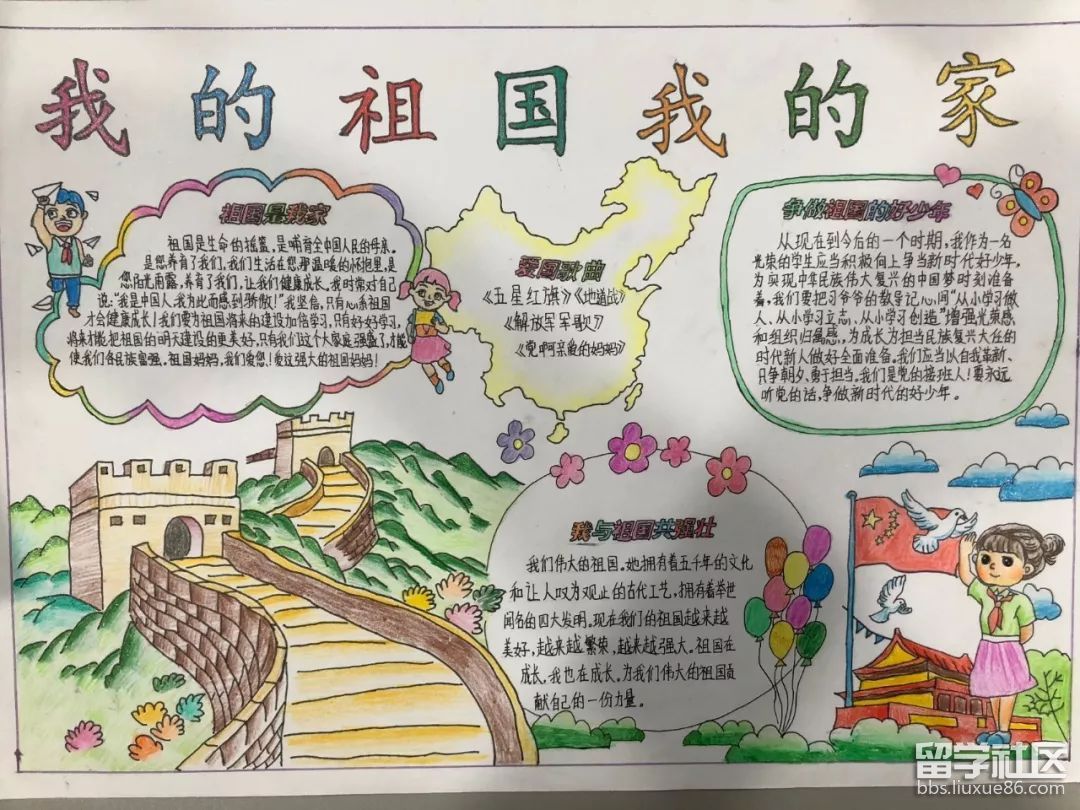 我的祖国我的家
祖国是我家
祖国是生命的摇篮,是哺育全中国人民的母亲。
是您养育了我们,我们生活在您那温暖的怀抱里,是
您阳光雨露,养育了我们,让我们健康成长,我时常对自己
说:“我是中国人,我为此而感到骄傲!”我坚信,只有心系祖国
才会健康成长!我们要为祖国将来的建设加倍学习,只有好好学习,
将来才能把祖国的明天建设的更美好,只有我们这个大家庭强盛了,才能
使我们各民族富强。祖国妈妈,我们爱您!爱这强大的祖国妈妈!
爱国歌曲
《五星红旗》《地道战》
《解放军军歌》
《党啊亲爱的妈妈》
争做祖国的好少年
从现在到今后的一个时期,我作为一名
光荣的学生应当积极向上争当新时代好少年,
为实现中华民族伟大复兴的中国梦时刻准备
着,我们要把习爷爷的教导记心间“从小学习做
人、从小学习立志、从小学习创造”增强光荣感
和组织归属感,为成长为担当民族复兴大任的
时代新人做好全面准备。我们应当以自我革新、
只争朝夕、勇于担当。我们是党的接班人!要永远
听党的话,争做新时代的好少年。
我与祖国共强壮
我们伟大的祖国,她拥有着五千年的文化
和让人叹为观止的古代工艺,拥有着举世
闻名的四大发明。现在我们的祖国越来越
美好,越来越繁荣,越来越强大。祖国在
成长,我也在成长,为我们伟大的祖国贡
献自己的一份力量。
留学社区
bbs.liuxue86.com